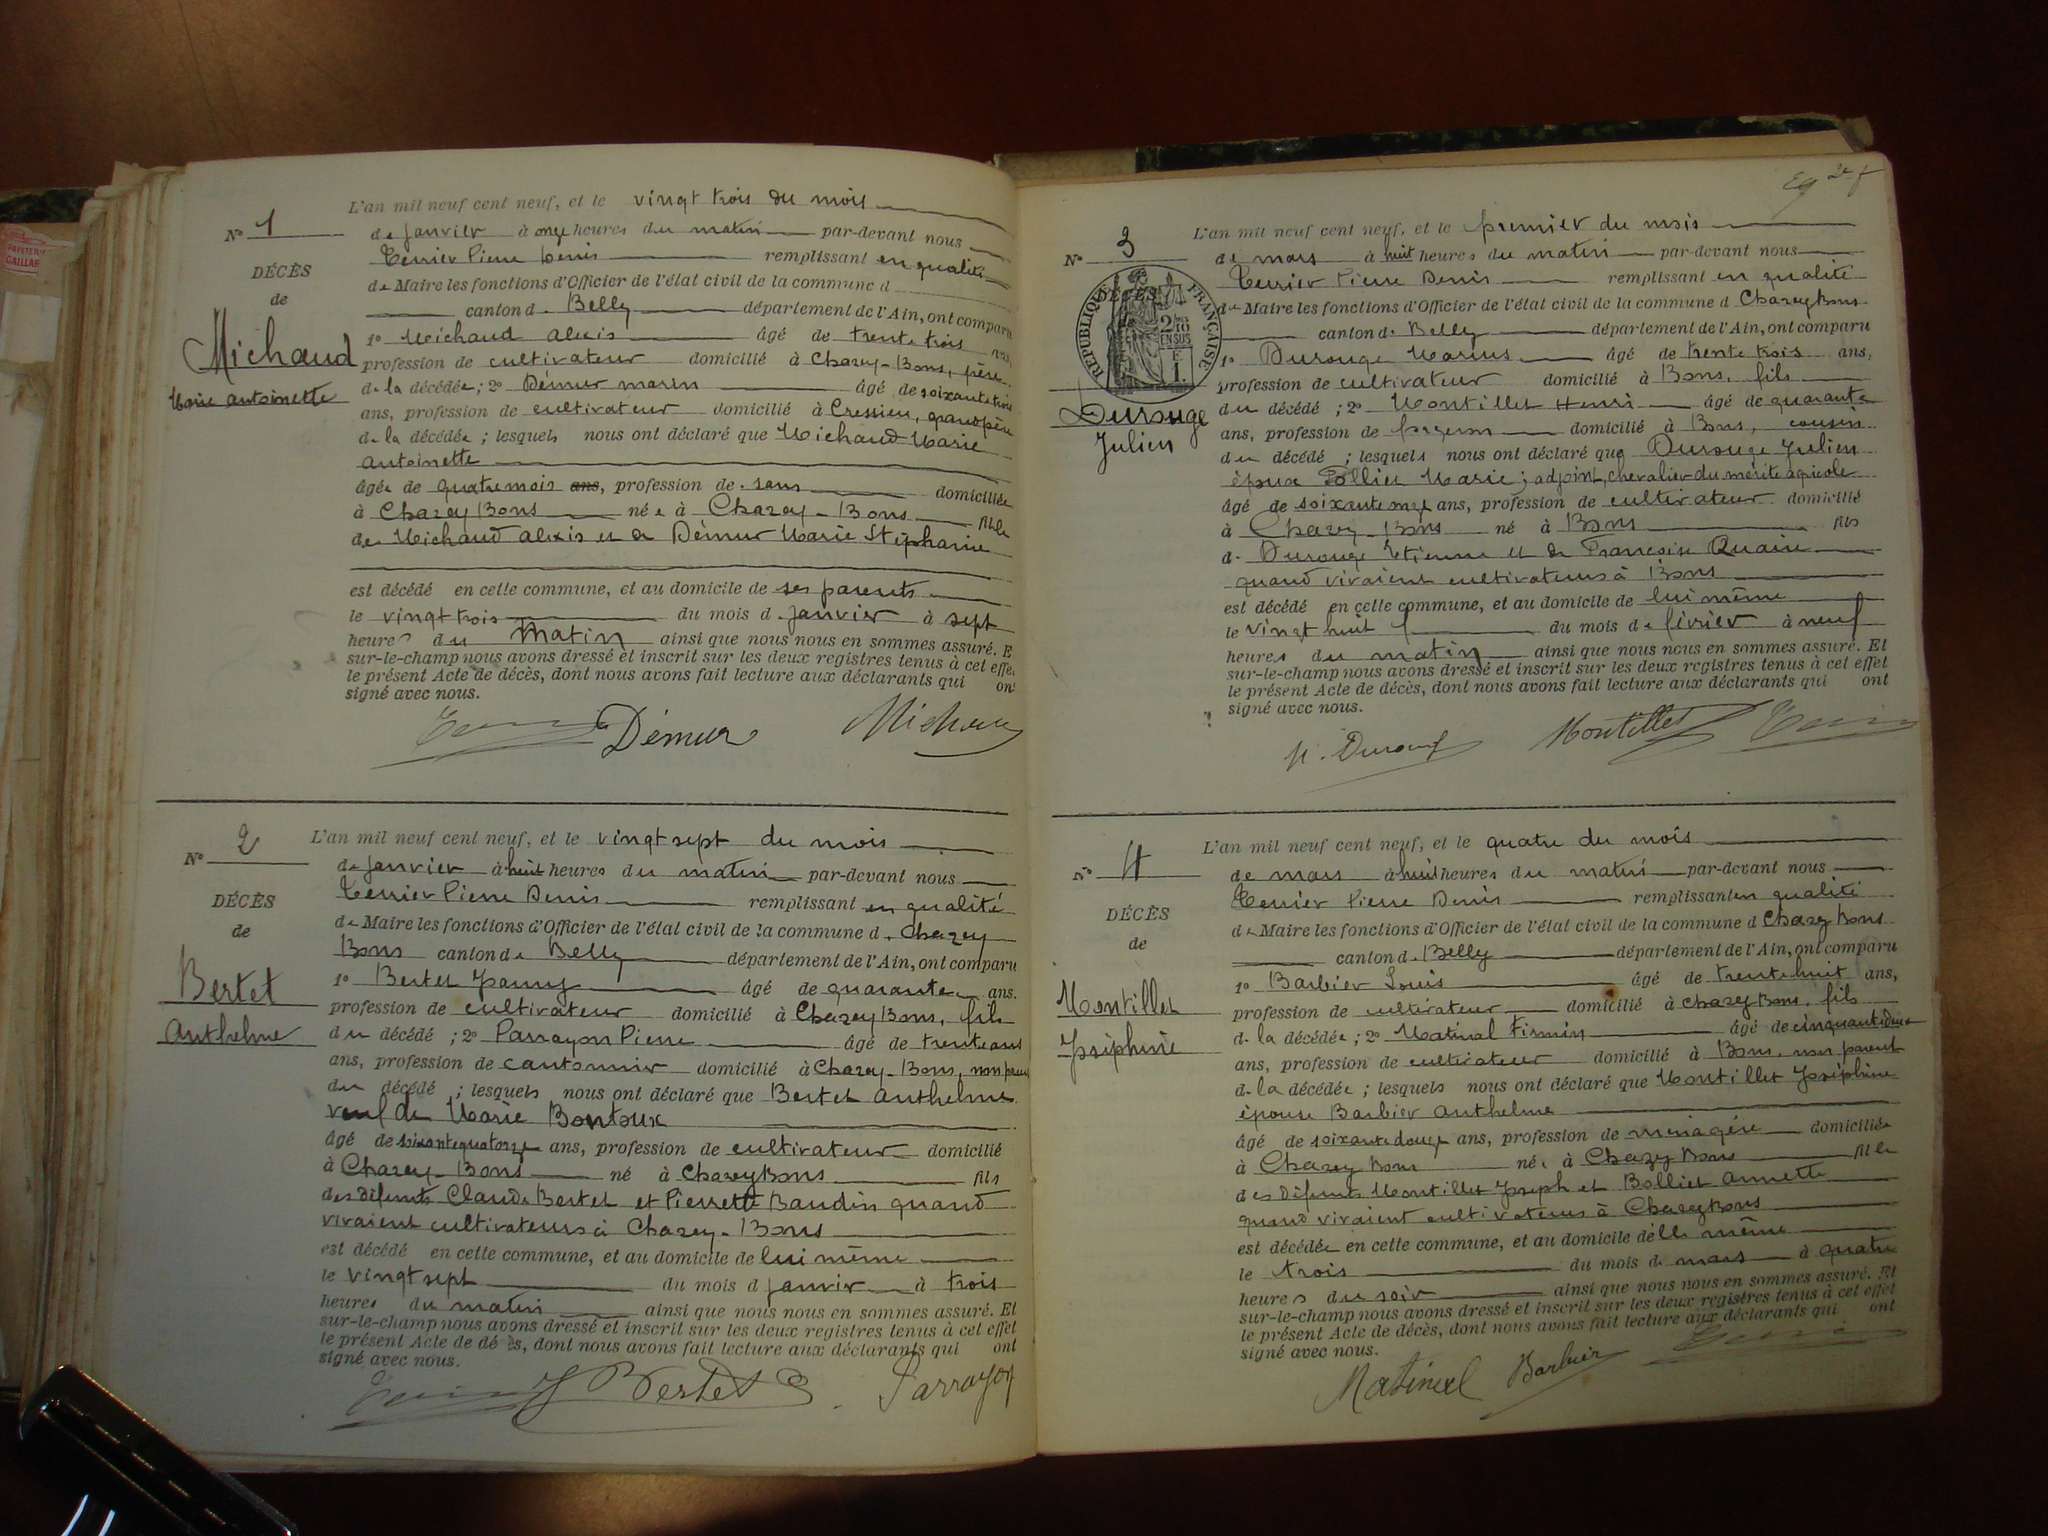 L'an mil neuf cent neuf, et le vingt trois du mois
N° 1
de janvier à onze heures du matin par-devant nous
Terrier Pierre Denis remplissant en qualité
DÉCÈS
de Maire les fonctions d'Officier de l'état civil de la commune d
de
canton de Belley département de l'Ain, ont comparu
Michaud
1° Michaud Alexis âgé de trente trois ans,
profession de cultivateur domicilié à Chazey-Bons, père
Marie Antoinette
de la décédée; 2° Démur marin âgé de soixante trois
ans, profession de cultivateur domicilié à Cressieu, grand père
de la décédée; lesquels nous ont déclaré que Michaud Marie
Antoinette
âgée de quatre mois ans, profession de sans domiciliée
à Chazey Bons née à Chazey-Bons fille
de Michaud Alexis et de Démur Marie Stéphanie
est décédé en cette commune, et au domicile de ses parents
le vingt trois du mois d janvier à sept
heures du matin ainsi que nous nous en sommes assuré. E
sur-le-champ nous avons dressé et inscrit sur les deux registres tenus à cet effet
le présent Acte de décès, dont nous avons fait lecture aux déclarants qui ont
signé avec nous.
Démur Michaud
L'an mil neuf cent neuf, et le vingt sept du mois
N° 2
de janvier à huit heures du matin par-devant nous
Terrier Pierre Denis remplissant en qualité
DÉCÈS
de Maire les fonctions d'Officier de l'état civil de la commune d Chazey
de
Bons canton de Belley département de l'Ain, ont comparu
Bertet
1° Bertet Fanny âgé de quarante ans.
Anthelme
profession de cultivateur domicilié à Chazey Bons, fils
du décédé; 2° Parrayon Pierre âgé de trente ans
ans, profession de cantonnier domicilié à Chazey-Bons, non parent
du décédé; lesquels nous ont déclaré que Bertet Anthelme
veuf de Marie Bontoux
âgé de soixante quatorze ans, profession de cultivateur domicilié
à Chazey-Bons né à Chazey Bons fils
des défunts Claude Bertet et Pierrette Baudin quand
vivaient cultivateurs à Chazey-Bons
est décédé en cette commune, et au domicile de lui même
le vingt sept du mois d janvier à trois
heures du matin ainsi que nous nous en sommes assuré. Et
sur-le-champ nous avons dressé et inscrit sur les deux registres tenus à cet effet
le présent Acte de dé ès, dont nous avons fait lecture aux déclarants qui ont
signé avec nous.
Bertet Parrayon
2e f
L'an mil neuf cent neuf, et le premier du mois
N° 3
de mars à huit heures du matin par-devant nous
Terrier Pierre Denis remplissant en qualité
RÉPUBLIQUE FRANÇAISE
de Maire les fonctions d'Officier de l'état civil de la commune d Chazey Bons
2/10 EN SUS
canton de Belley département de l'Ain, ont comparu
1° Durouge Marius âgé de trente trois ans,
profession de cultivateur domicilié à Bons, fils
Durouge
du décédé; 2° Montillet Henri âgé de quarante
Julien
ans, profession de forgeron domicilié à Bons, cousin
du décédé; lesquels nous ont déclaré que Durouge Julien
époux Pollieu Marie; adjoint, chevalier du mérite agricole
âgé de soixante onze ans, profession de cultivateur domicilié
à Chazey-Bons né à Bons fils
de Durouge Etienne et de Françoise Quaire
quand vivaient cultivateurs à Bons
est décédé en cette commune, et au domicile de lui même
le vingt huit du mois de février à neuf
heures du matin ainsi que nous nous en sommes assuré. Et
sur-le-champ nous avons dressé et inscrit sur les deux registres tenus à cet effet
le présent Acte de décès, dont nous avons fait lecture aux déclarants qui ont
signé avec nous.
Montillet
L'an mil neuf cent neuf, et le quatre du mois
N° 4
de mars à huit heures du matin par-devant nous
Terrier Pierre Denis remplissant en qualité
DÉCÈS
de Maire les fonctions d'Officier de l'état civil de la commune d Chazey Bons
de
canton de Belley département de l'Ain, ont comparu
1° Barbier Louis âgé de trente huit ans,
Montillet
profession de cultivateur domicilié à Chazey Bons, fils
Joséphine
de la décédée; 2° Matinal Firmin âgé de cinquante deux
ans, profession de cultivateur domicilié à Bons, non parent
de la décédée; lesquels nous ont déclaré que Montillet Joséphine
épouse Barbier Anthelme
âgé de soixante douze ans, profession de ménagère domiciliée
à Chazey Bons née à Chazey Bons fille
des défunts Montillet Joseph et Bolliet Annette
quand vivaient cultivateurs à Chazey Bons
est décédée en cette commune, et au domicile d'elle même
le trois du mois de mars à quatre
heures du soir ainsi que nous nous en sommes assuré. Et
sur-le-champ nous avons dressé et inscrit sur les deux registres tenus à cet effet
le présent Acte de décès, dont nous avons fait lecture aux déclarants qui ont
signé avec nous.
Matinal Barbier